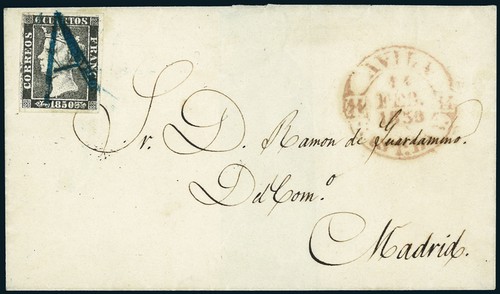 6 CUARTOS
CORREOS
FRANCO
1850
A
AVILA
1850
Sr. D. Ramon de Guardamino.
Del Com.º
Madrid.